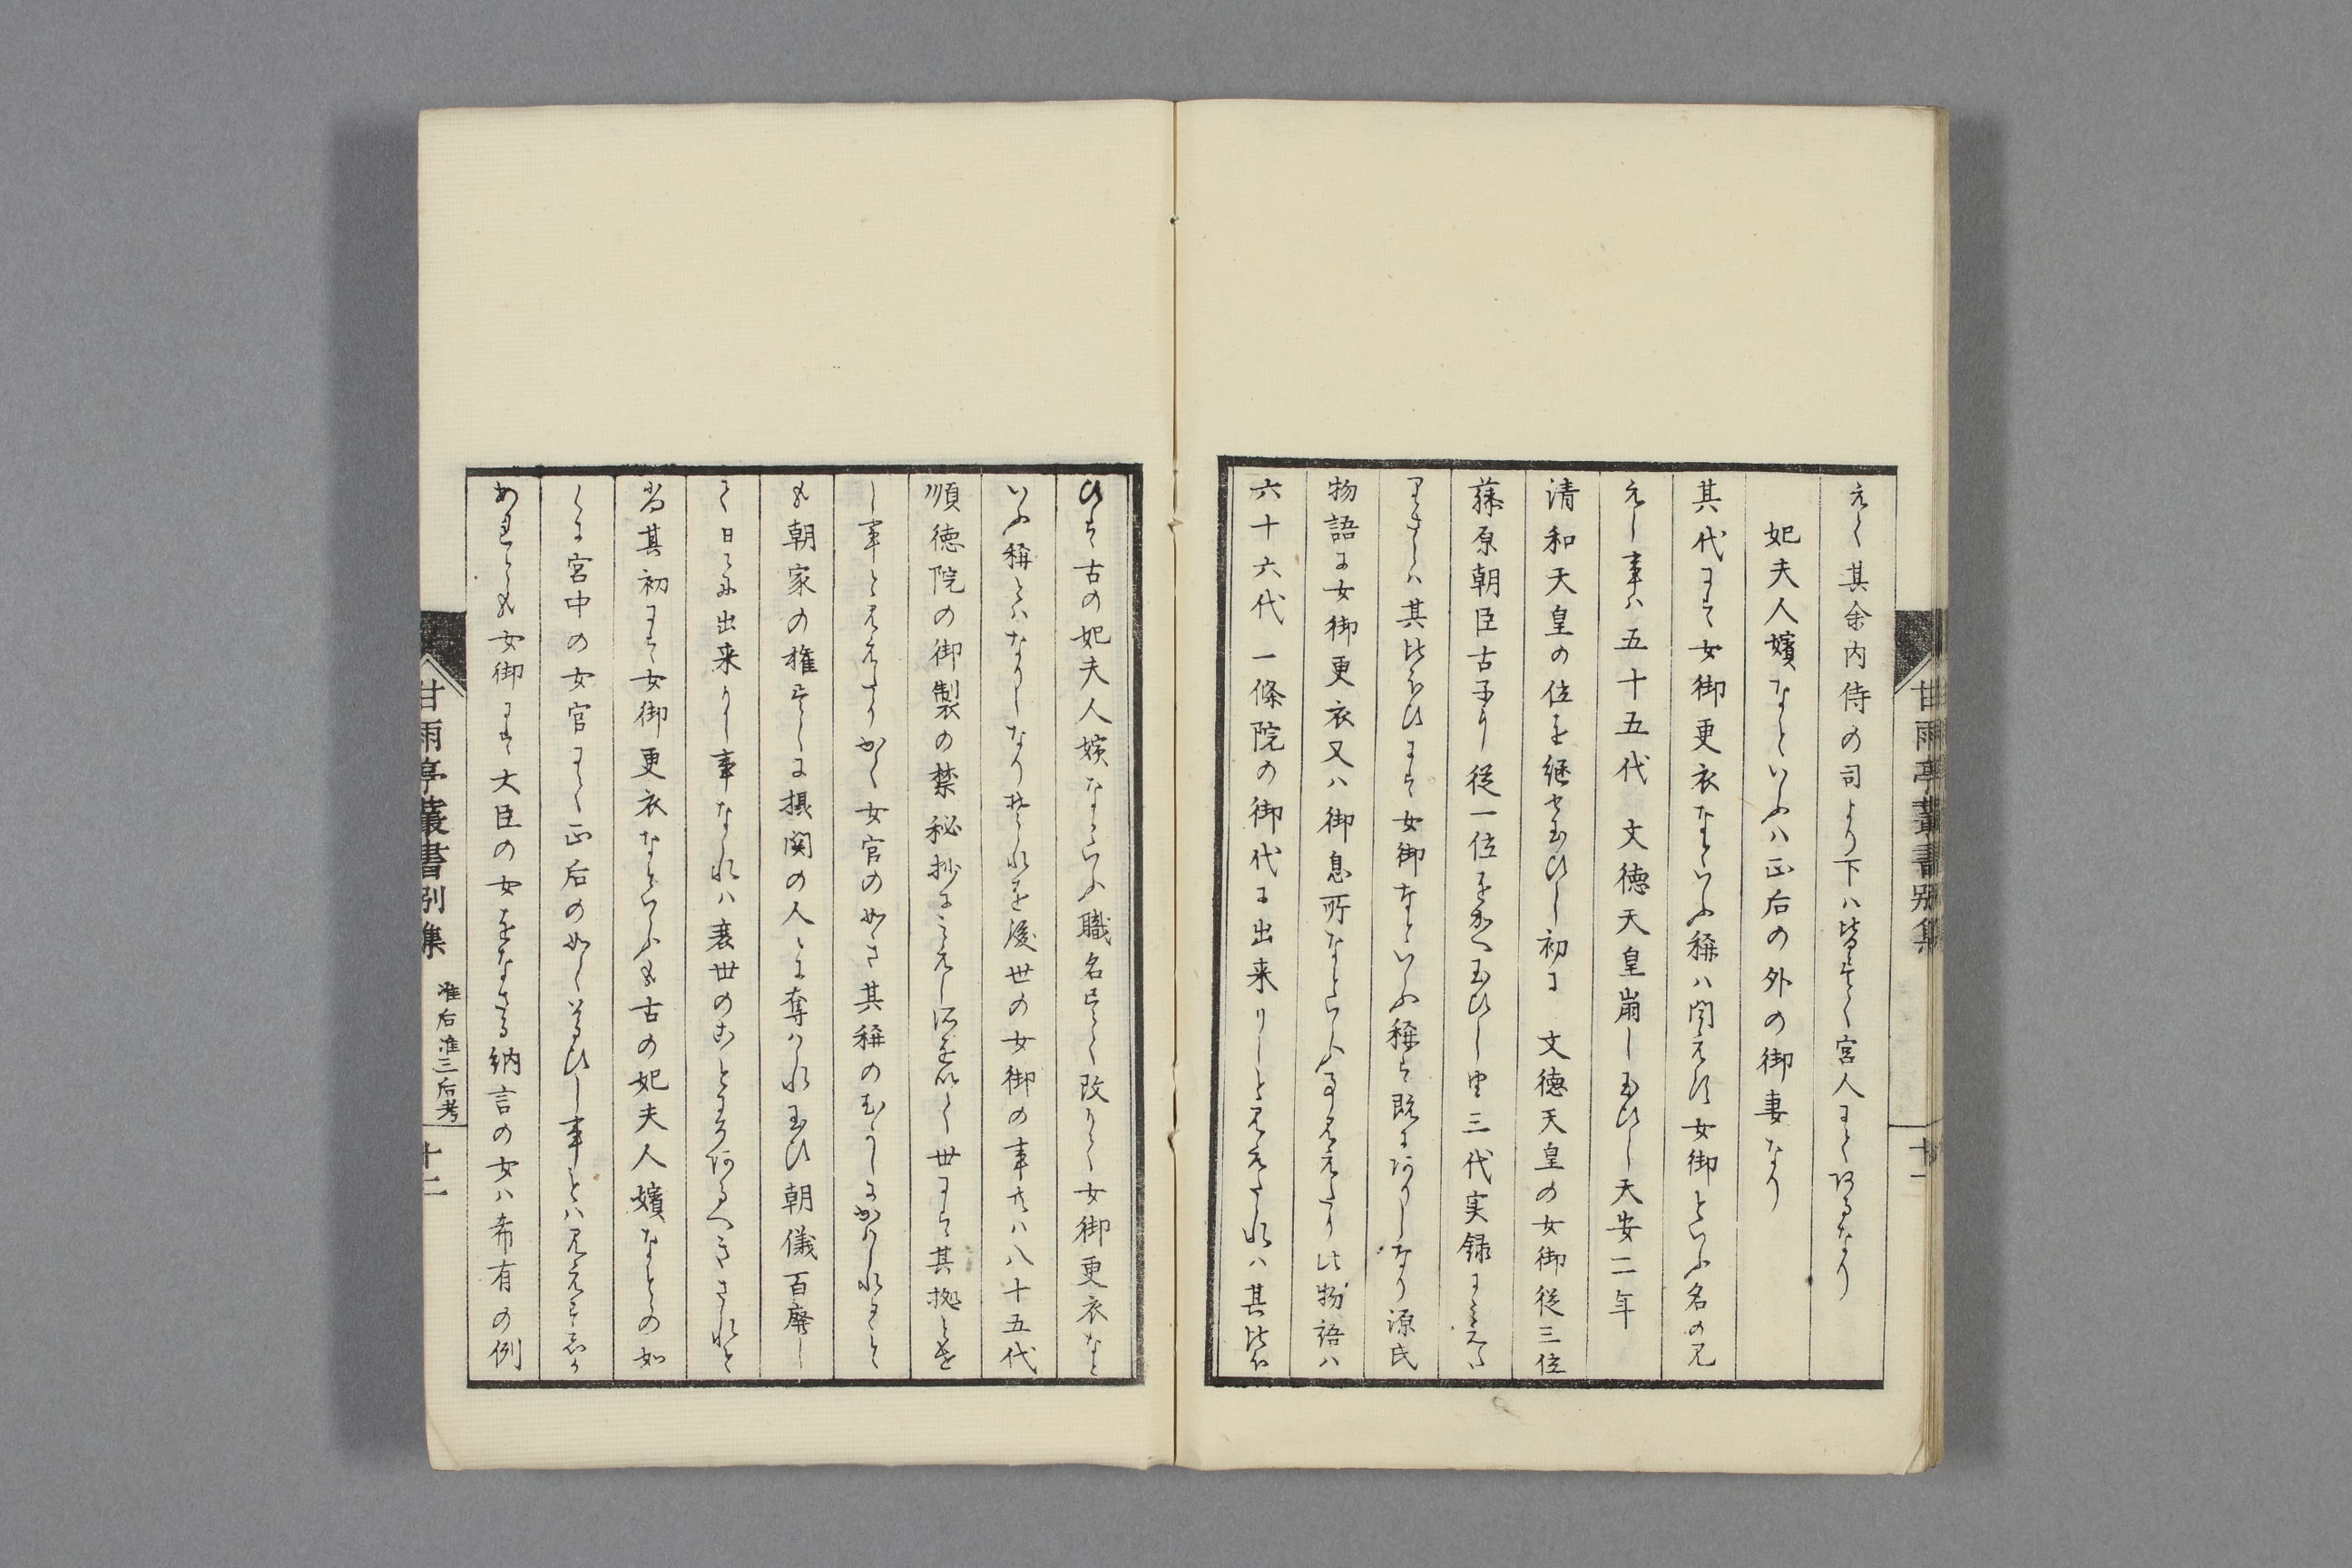 えて其余内侍の司より下ハ皆すへて宮人にてあるなり
妃夫人嬪なといふハ正后の外の御妻なり
其代まて女御更衣なといふ稱ハ聞えす女御といふ名の見
えし事ハ五十五代　文徳天皇崩し玉ひし天安二年
清和天皇の位を継せ玉ひし初に　文徳天皇の女御従三位
藤原朝臣古子に従一位を加へ玉ひし由三代実録に
まさしハ其比ほひまて女御なといふ稱も既にありしなり源氏
物語に女御更衣又ハ御息所なといふ事見えたり此物語ハ
六十六代　一條院の御代に出来りしと見えたれハ其比ほ
ひまて古の妃夫人嬪なといふ職名すへて改りて女御更衣なと
いふ稱とハなりしなりそれを後世の女御の事ハ八十五代
順徳院の御製の禁秘抄にみえし所を以て世まて其拠とせ
し事と見えたりかく女官の如き其稱のむかしにかはれると
も朝家の権すてに摂関の人々に奪ハれ玉ひ朝儀百廃し
て日々に出来りし事なれハ衰世のことにそあるへきされと
当其初まて女御更衣なといふも古の妃夫人嬪なとの如
くに宮中の女官にて正后の如く
事とハ見えす
あれとも女御にハ大臣の女をなさる納言の女ハ希有の例
甘雨亭叢書別集
十一
甘雨亭叢書別集
准后准三后考
十二